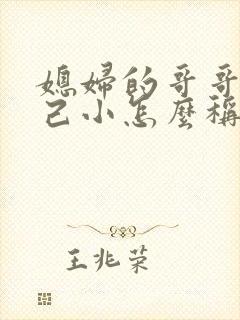 媳婦的哥哥
己小怎麼稱
王兆荣